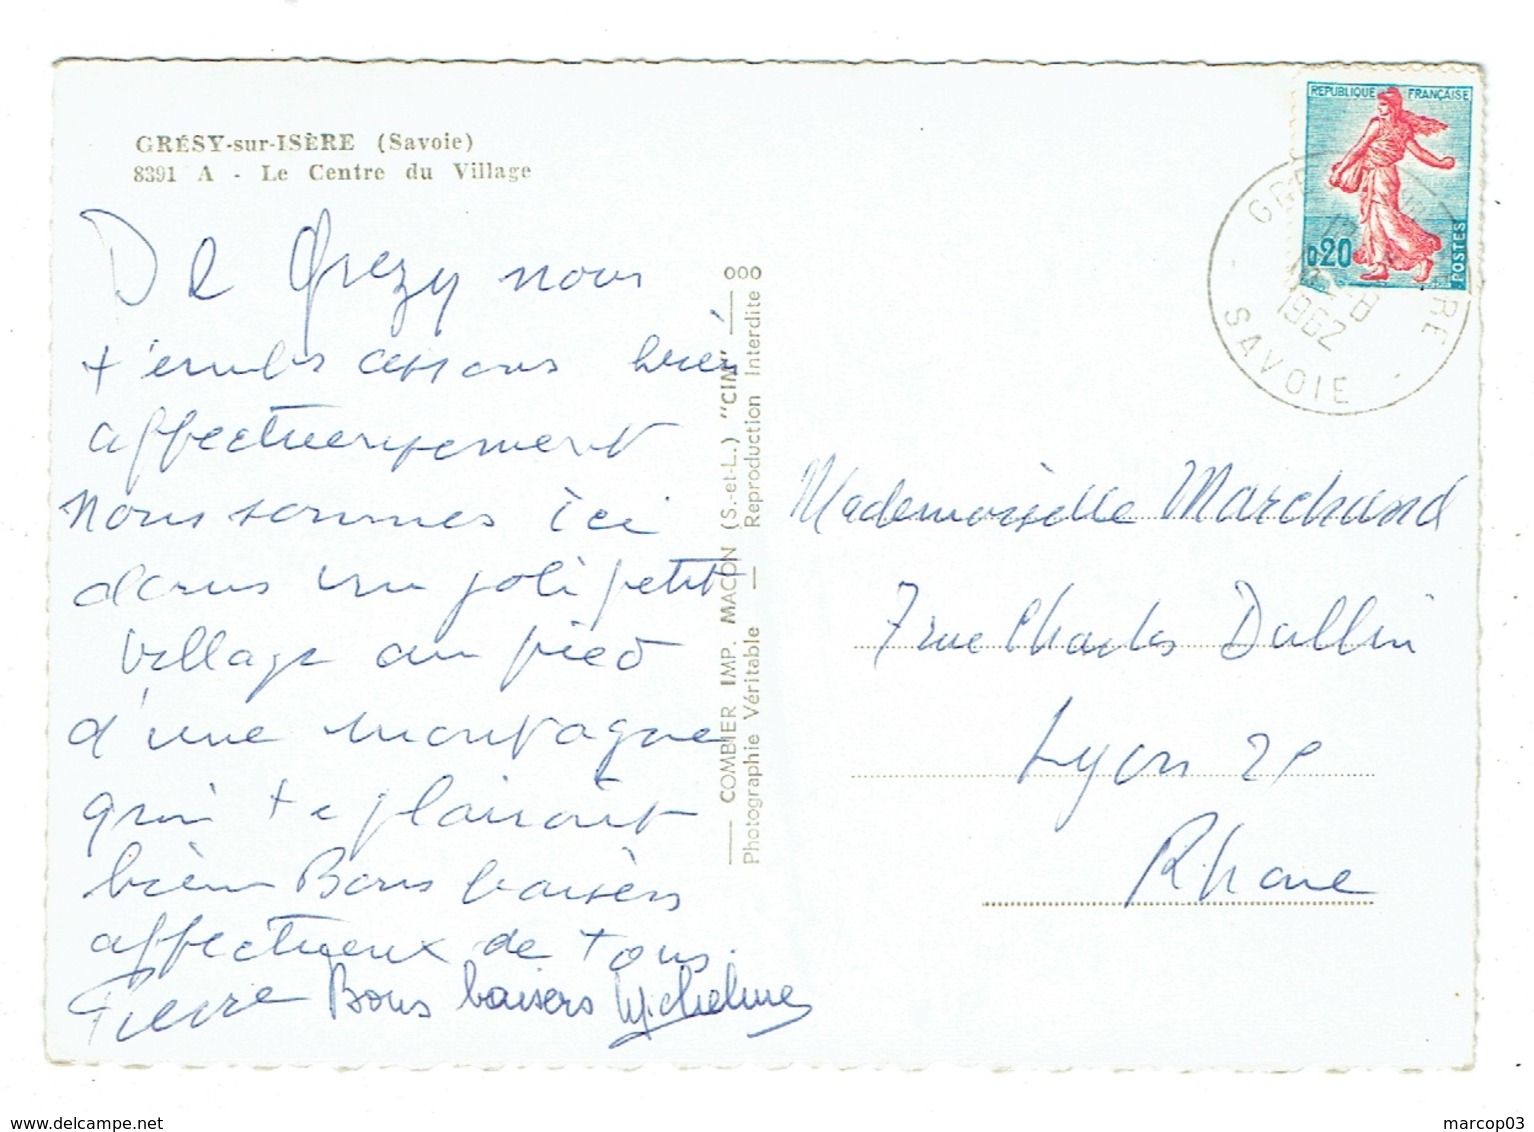 GRÉSY-sur-ISÈRE (Savoie)
8391 A - Le Centre du Village
De Grezy nous
t'embrassons bien
affectueusement
Nous sommes ici
dans un joli petit
village au pied
d'une montagne
qui te plairait
bien Bons baisers
affectueux de tous.
Pierre Bons baisers Micheline
COMBIER IMP. MACON (S.-et-L.) "CIM" 000
Photographie Véritable — Reproduction Interdite
REPUBLIQUE FRANÇAISE
0,20
POSTES
1962
SAVOIE
Mademoiselle Marchand
7 rue Charles Dullin
Lyon 2e
Rhone
marcop03
delcampe.net